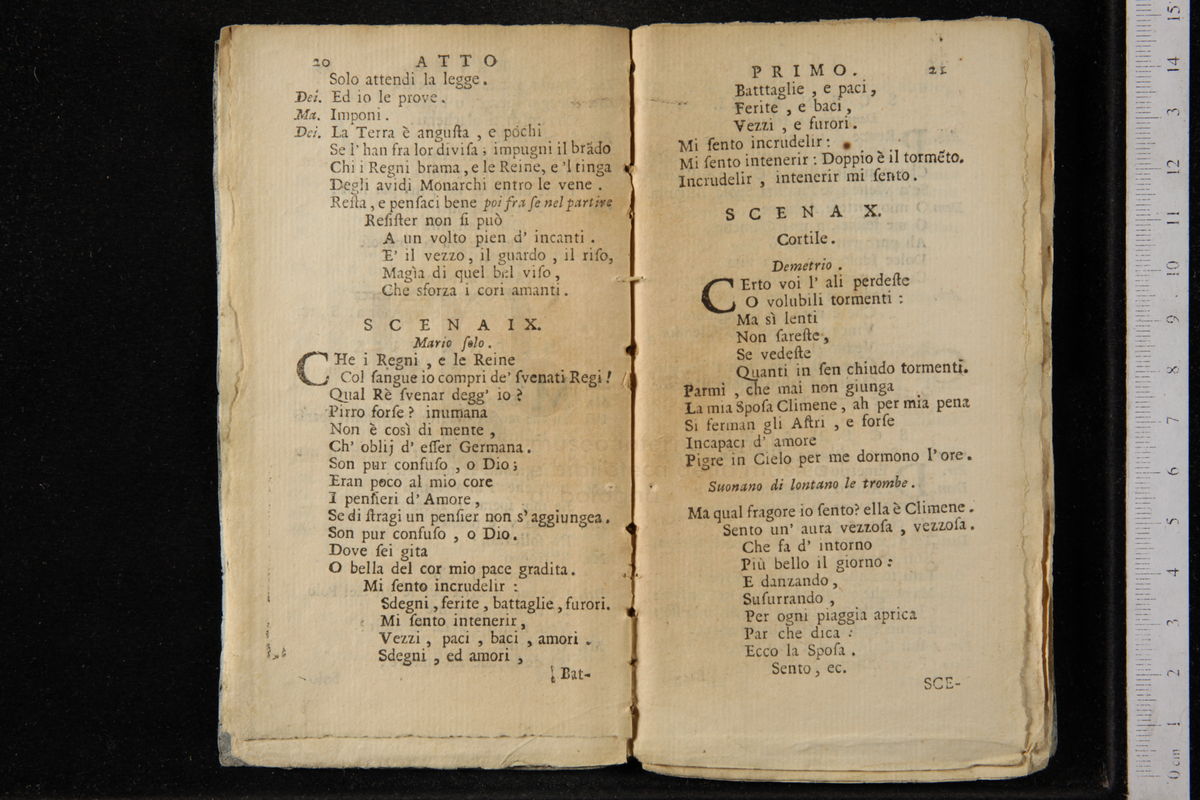 20 ATTO
Solo attendi la legge.
Dei. Ed io le prove.
Ma. Imponi.
Dei. La Terra è anguſta , e pochi
Se l' han fra lor diviſa ; impugni il brãdo
Chi i Regni brama , e le Reine, e 'l tinga
Degli avidi Monarchi entro le vene .
Reſta , e penſaci bene poi fra ſe nel partire
Reſiſter non ſi può
A un volto pien d' incanti .
E' il vezzo , il guardo , il riſo,
Magìa di quel bel viſo ,
Che sforza i cori amanti .
SCENA IX.
Mario ſolo .
CHe i Regni , e le Reine
Col ſangue io compri de' ſvenati Regi !
Qual Rè ſvenar degg' io ?
Pirro forſe ? inumana
Non è così di mente ,
Ch' oblij d' eſſer Germana .
Son pur confuſo , o Dio ;
Eran poco al mio core
I penſieri d' Amore ,
Se di ſtragi un penſier non s' aggiungea .
Son pur confuſo , o Dio .
Dove ſei gita
O bella del cor mio pace gradita .
Mi ſento incrudelir :
Sdegni , ferite , battaglie , furori .
Mi ſento intenerir ,
Vezzi , paci , baci , amori .
Sdegni , ed amori ,
Bat-
PRIMO. 21
Batttaglie , e paci ,
Ferite , e baci ,
Vezzi , e furori .
Mi ſento incrudelir :
Mi ſento intenerir : Doppio è il tormẽto.
Incrudelir , intenerir mi ſento .
SCENA X.
Cortile .
Demetrio .
CErto voi l' ali perdeſte
O volubili tormenti :
Ma sì lenti
Non ſareſte ,
Se vedeſte
Quanti in ſen chiudo tormenti .
Parmi , che mai non giunga
La mia Spoſa Climene , ah per mia pena
Si ferman gli Aſtri , e forſe
Incapaci d' amore
Pigre in Cielo per me dormono l' ore .
Suonano di lontano le trombe .
Ma qual fragore io ſento? ella è Climene .
Sento un' aura vezzoſa , vezzoſa .
Che fa d' intorno
Più bello il giorno :
E danzando ,
Suſurrando ,
Per ogni piaggia aprica
Par che dica :
Ecco la Spoſa .
Sento , ec.
SCE-
0 cm 1 2 3 4 5 6 7 8 9 10 11 12 13 14 15